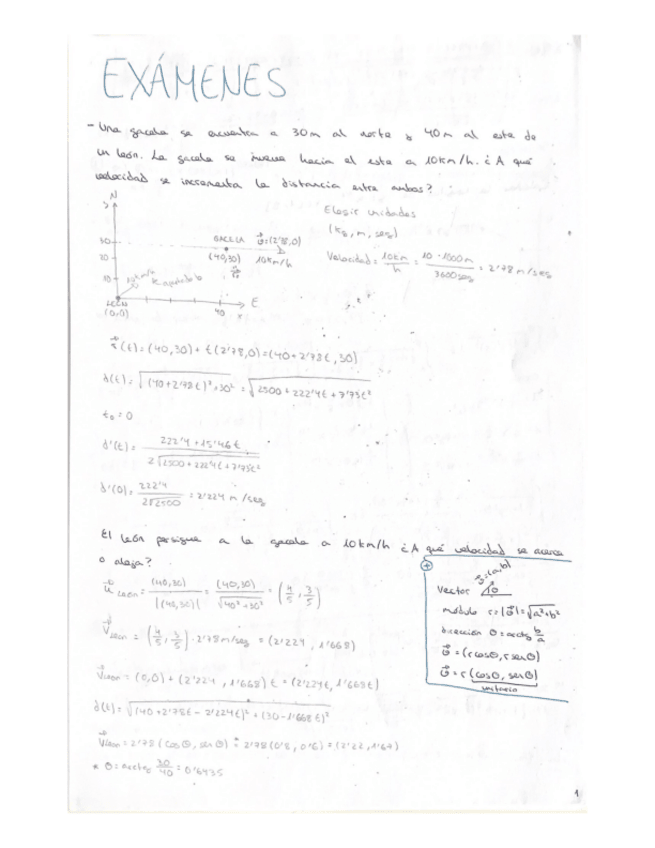 EXÁMENES
- Una gacela se encuentra a 30m al norte y 40m al este de
un león. La gacela se mueve hacia el este a 10km/h. ¿A qué
velocidad se incrementa la distancia entre ambos?
N
y
Elegir unidades
(kg, m, seg)
30
GACELA v⃗=(2'78,0)
20
(40,30) 10km/h
Velocidad = 10km/h = 10·1000m/3600seg = 2'78 m/seg
10
LEÓN
(0,0)
40
x
E
r⃗(t)=(40,30)+t(2'78,0)=(40+2'78t,30)
d(t)=√((40+2'78t)²+30²)=√(2500+222'4t+7'73t²)
t₀=0
d'(t)=(222'4+15'46t)/(2√(2500+222'4t+7'73t²))
d'(0)=222'4/(2√2500)=2'224 m/seg
El león persigue a la gacela a 10km/h ¿A qué velocidad se acerca
o aleja?
u⃗ León=(40,30)/|(40,30)|=(40,30)/√(40²+30²)=(4/5,3/5)
V⃗ León=(4/5,3/5)·2'78m/seg=(2'224,1'668)
V⃗ León=(0,0)+(2'224,1'668)t=(2'224t,1'668t)
d(t)=√((40+2'78t-2'224t)²+(30-1'668t)²)
V⃗ León=2'78(cosθ,senθ)=2'78(0'8,0'6)=(2'22,1'67)
* θ=arctg 30/40=0'6435
v⃗=(a,b)
Vector θ
módulo r=|v⃗|=√(a²+b²)
dirección θ=arctg b/a
v⃗=(r cosθ, r senθ)
v⃗=r(cosθ, senθ)
unitario
1